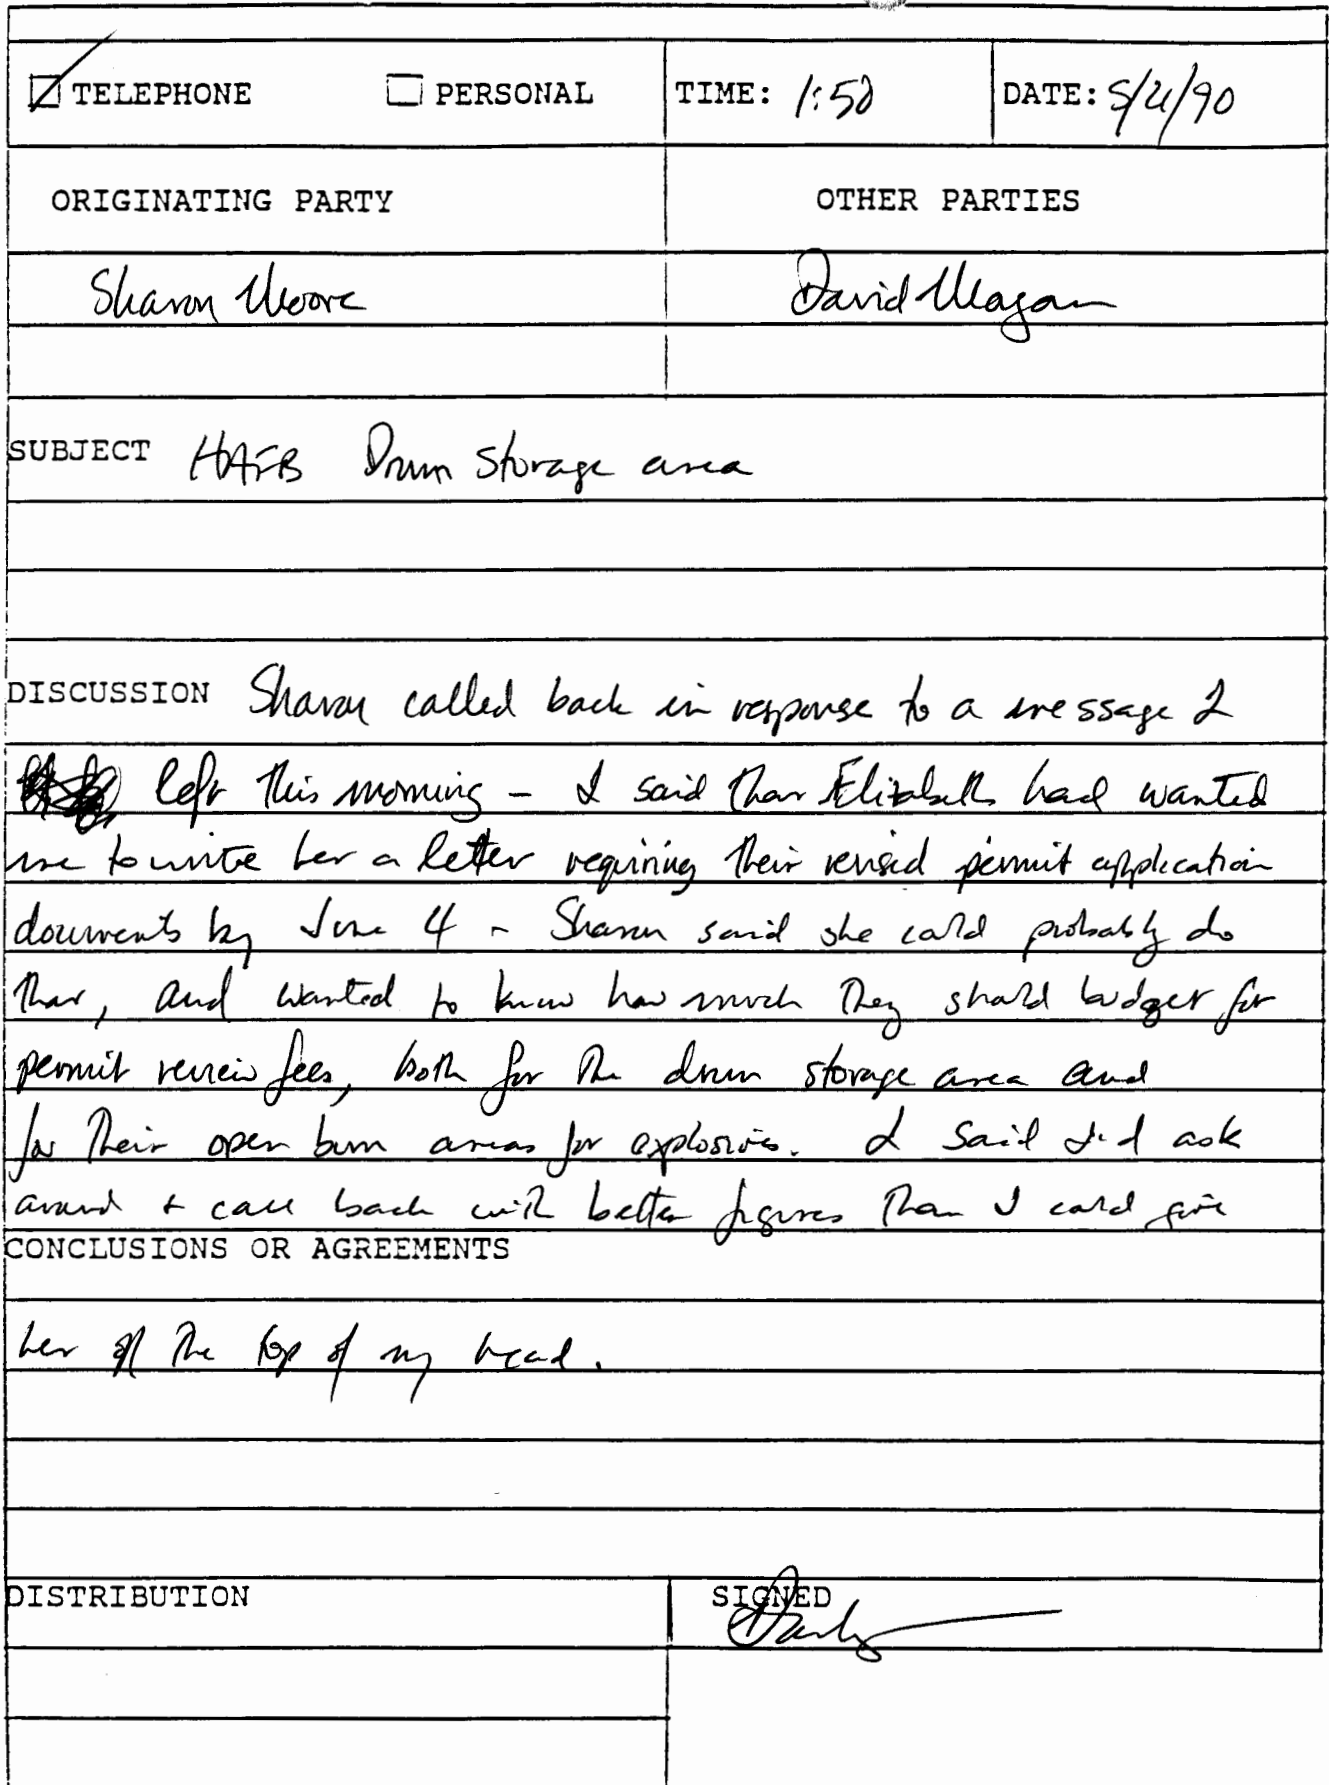 TELEPHONE PERSONAL TIME: 1:50 DATE: 5/21/90
ORIGINATING PARTY OTHER PARTIES
Sharon Moore David Megan
SUBJECT HAFB Drum storage area
DISCUSSION Sharon called back in response to a message I
left this morning - I said that Elizabeth had wanted
me to write her a letter requiring their revised permit application
documents by June 4 - Sharon said she could probably do
that, and wanted to know how much they should budget for
permit review fees, both for the drum storage area and
for their open burn areas for explosives. I said I'd ask
around + call back with better figures than I could give
CONCLUSIONS OR AGREEMENTS
her off the top of my head.
DISTRIBUTION SIGNED